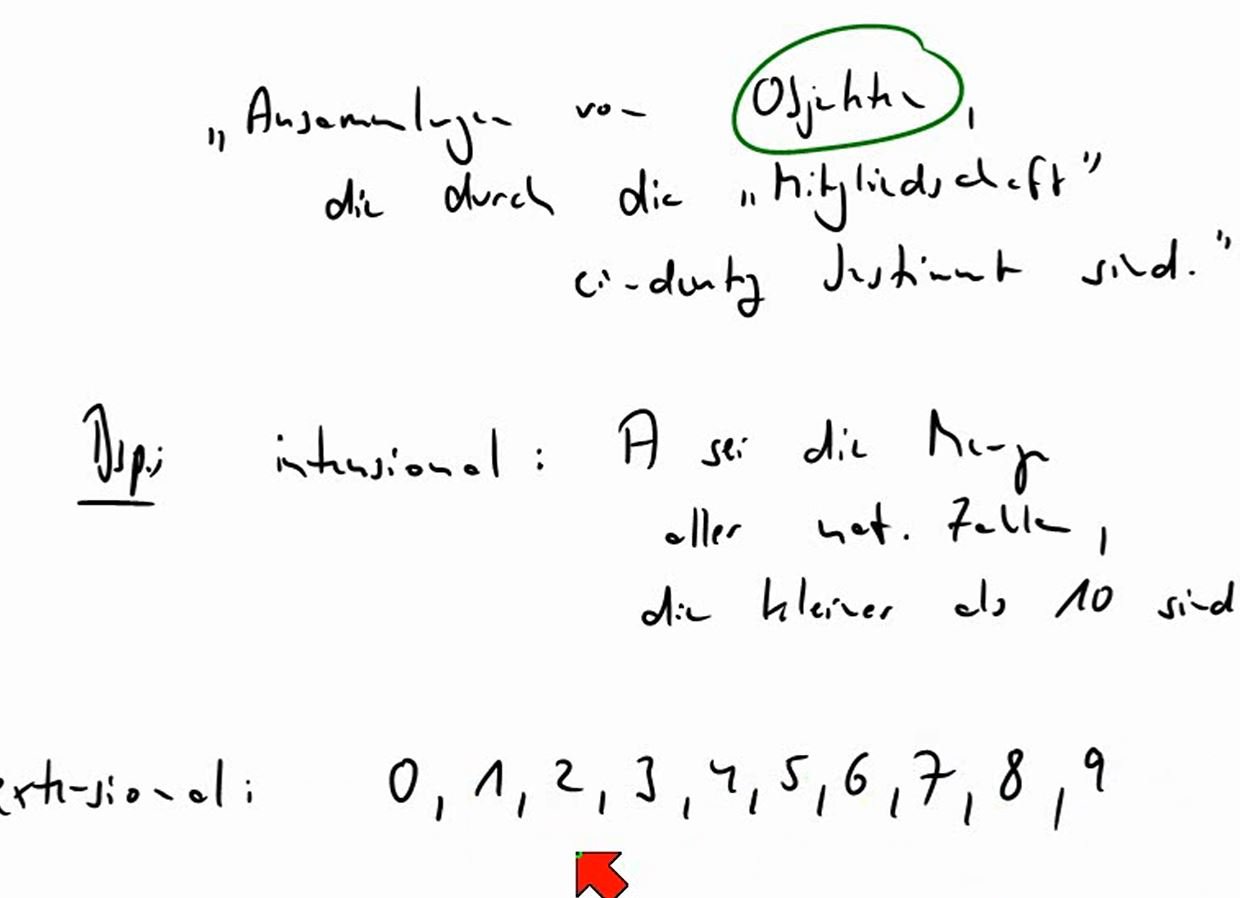 „Ansammlungen von Objekten,
die durch die „Mitgliedschaft"
eindeutig bestimmt sind."
Bsp.: intensional: A sei die Menge
aller nat. Zahlen,
die kleiner als 10 sind
extensional: 0, 1, 2, 3, 4, 5, 6, 7, 8, 9